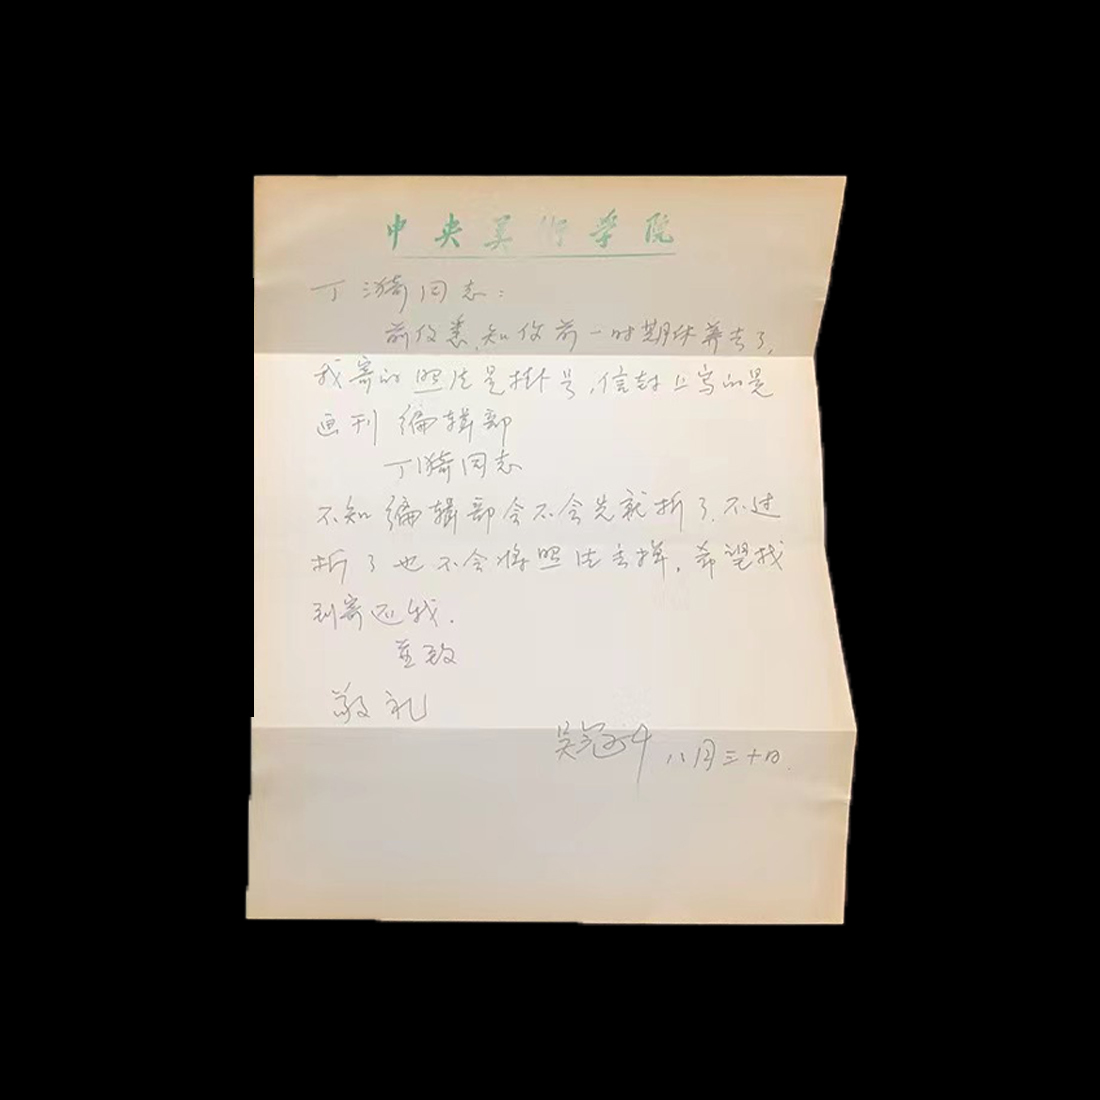 中央美術学院
丁漪同志：
前信悉，知你前一时期休养去了，
我寄的照片是掛号，信封上写的是
画刊编辑部
丁漪同志
不知编辑部会不会先就折了，不过
折了也不会将照片丢掉，希望找
到寄还我。
并致
敬礼
吴冠中 八月三十日.